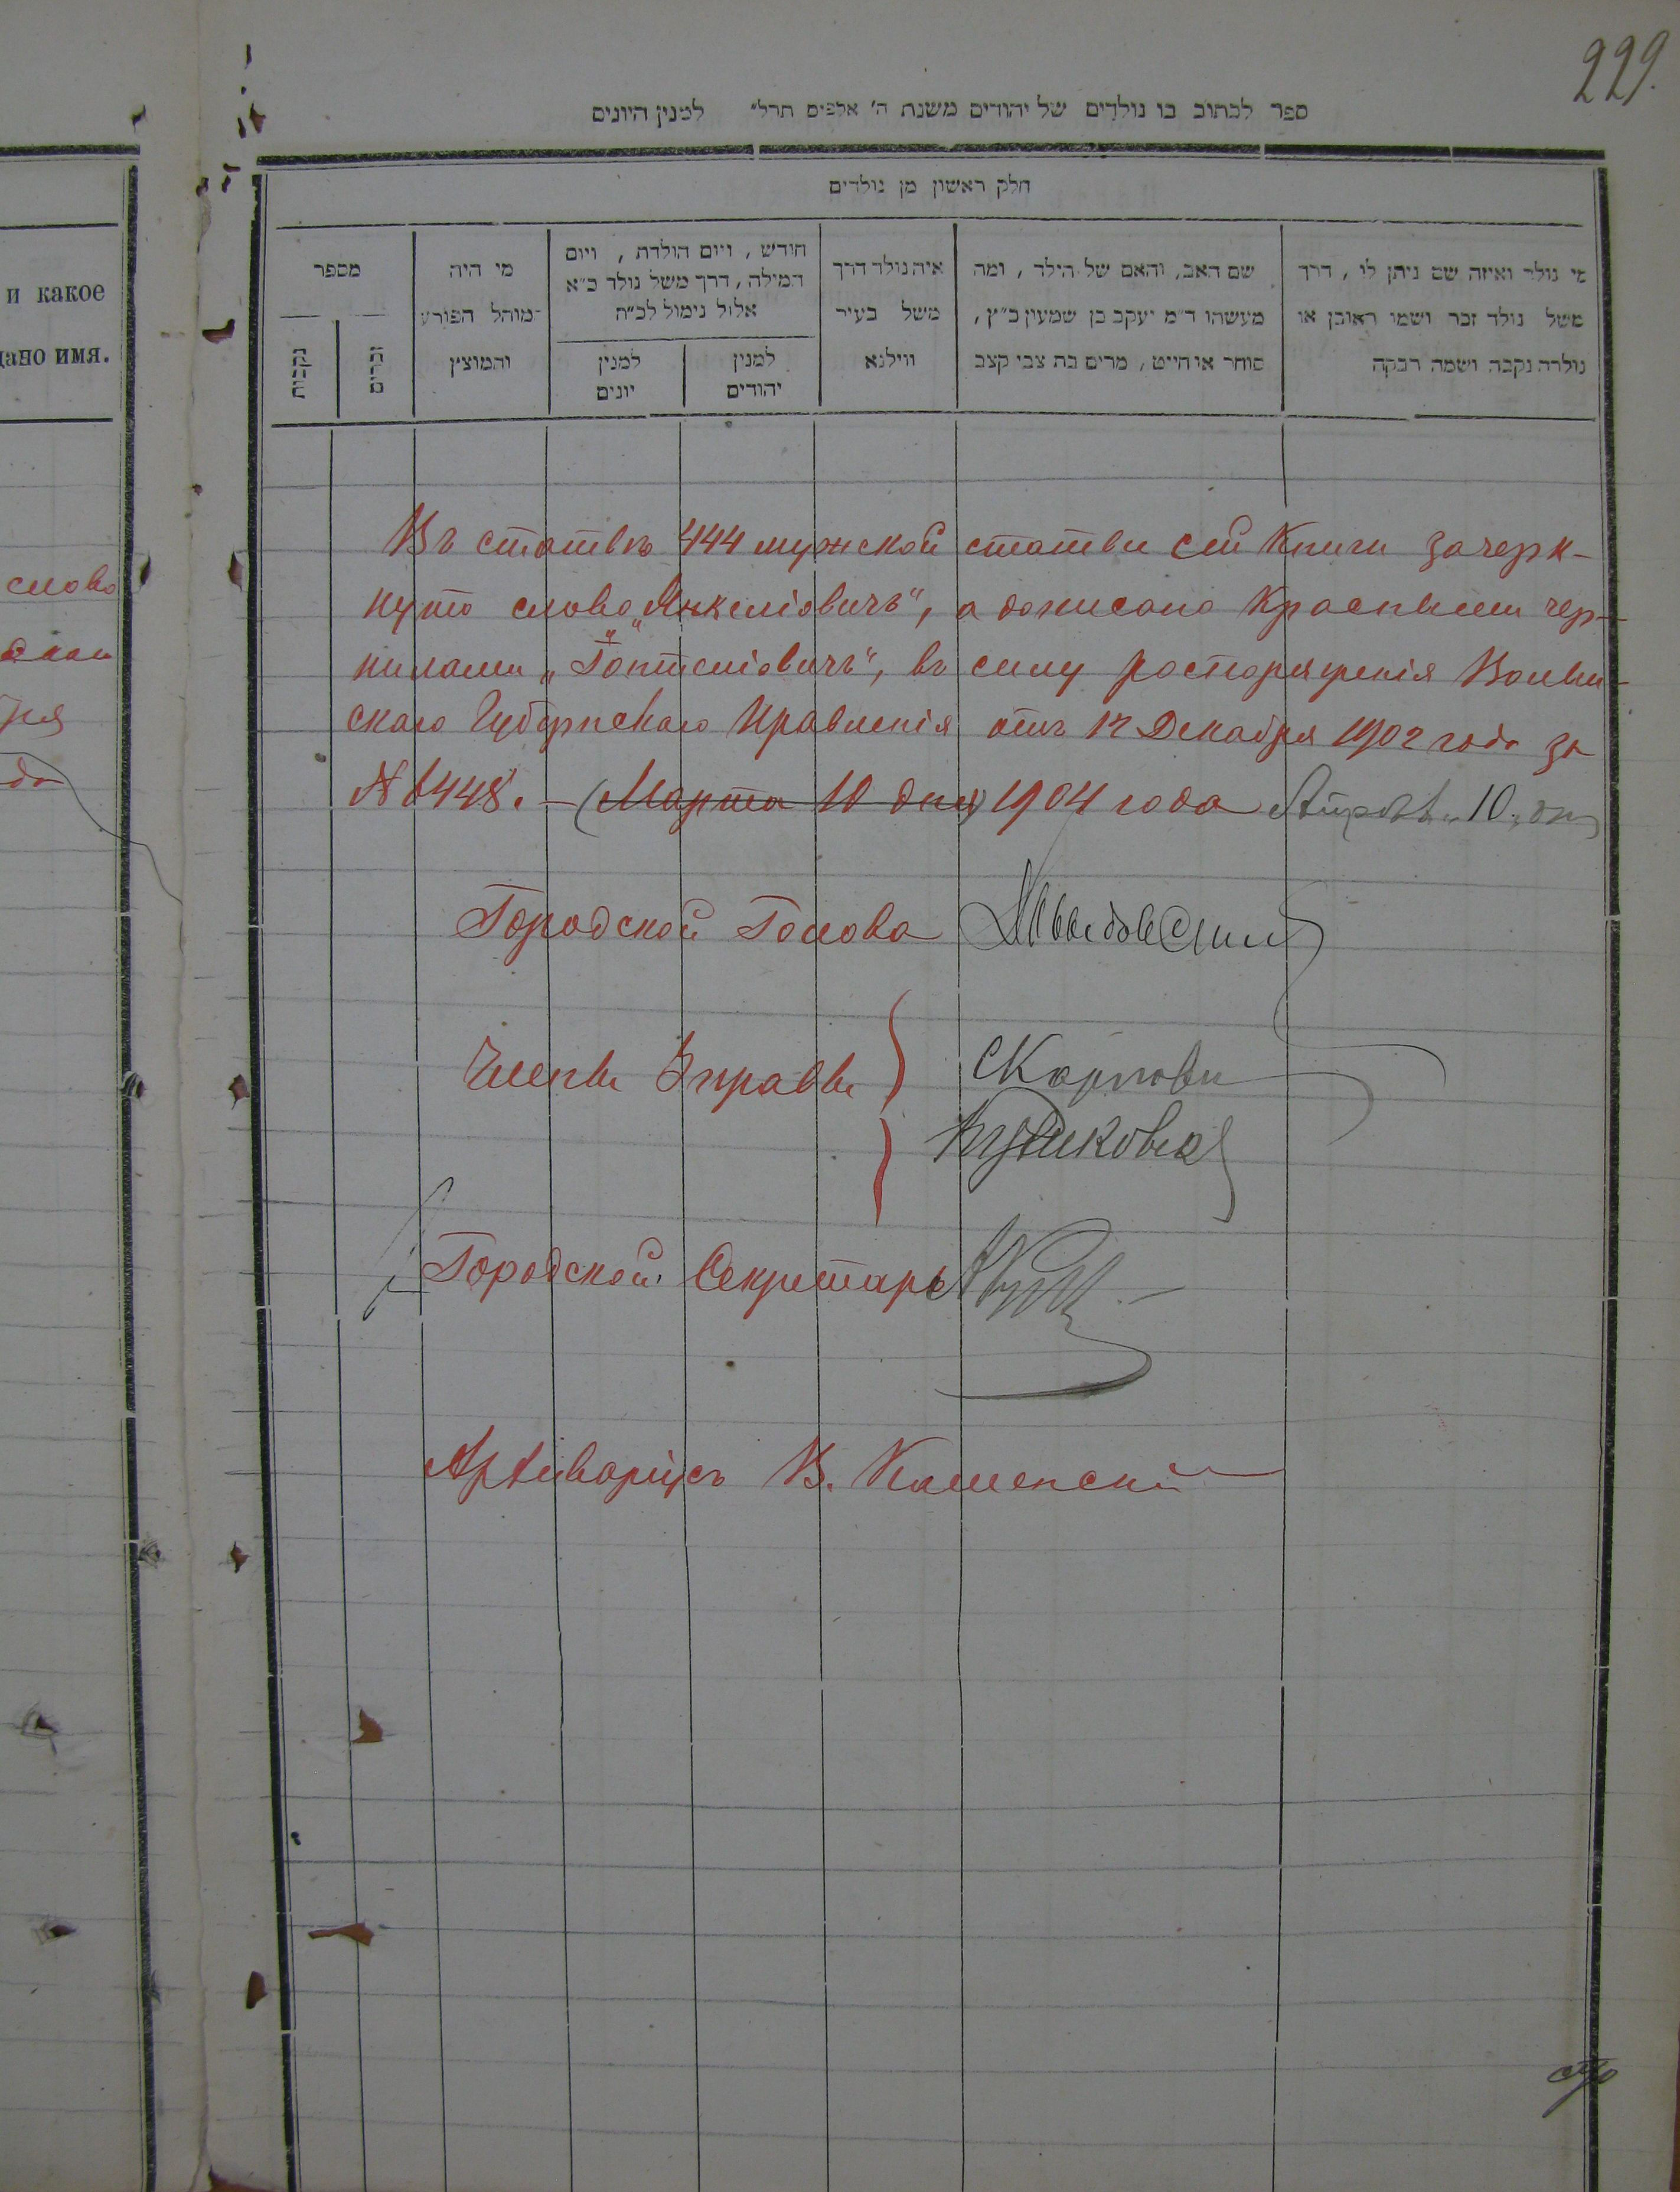 229.
ספר לכתוב בו נולדים של יהודים משנת ה' אלפים תרל" למנין היונים
חלק ראשון מן נולדים
מי נולד ואיזה שם ניתן לו, דרך
משל נולד זכר ושמו ראובן או
נולדה נקבה ושמה רבקה
שם האב, והאם של הילד, ומה
מעשהו ד"מ יעקב בן שמעון כ"ץ,
סוחר או חייט, מרים בת צבי קצב
איה נולד דרך
משל בעיר
ווילנא
חודש, ויום הולדת, ויום
המילה, דרך משל נולד כ"א
אלול נימול לכ"ח
למנין
יהודים
למנין
יונים
מי היה
המוהל הפורע
והמוצץ
מספר
זכרים
נקבות
и какое
дано имя.
слово
да
Въ статьѣ 444 мужской статьи сей Книги зачерк-
нуто слово „Янкеліовичъ", а дописано Красными чер-
нилами „Гопшеліовичъ", въ силу распоряженія Волын-
скаго Губернскаго Правленія отъ 17 Декабря 1902 года за
№ 6448. – (Марта 10 дня) 1904 года Апрѣля 10 дня
Городской Голова
Члены Управы
Городской Секретарь
Архиваріусъ В. Каменскій